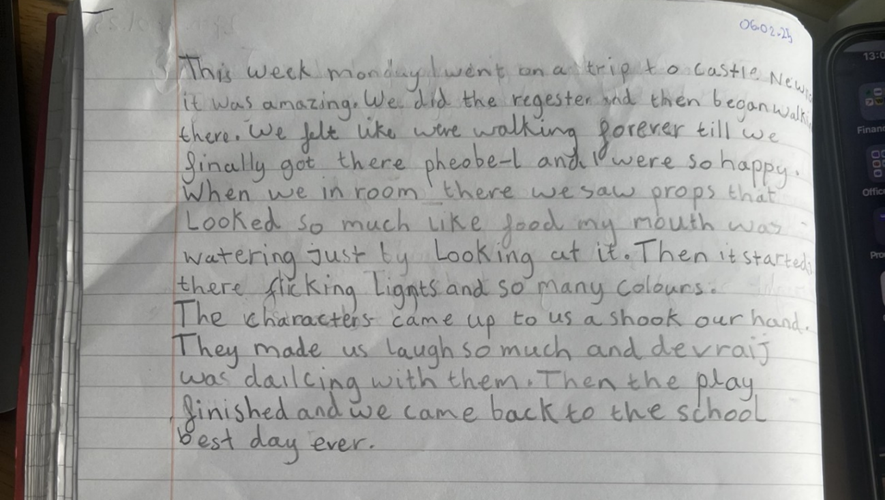 06.02.25
This week monday I went on a trip to castle New
it was amazing. We did the regester and then began walki
there. We felt like were walking forever till we
finally got there pheobe-L and I were so happy.
When we in room there we saw props that
Looked so much like food my mouth was
watering just by Looking at it. Then it started
there flicking Lights and so many colours.
The characters came up to us a shook our hand.
They made us laugh so much and devraij
was dailcing with them. Then the play
finished and we came back to the school
best day ever.
13:0
Finan
Offic
Pro